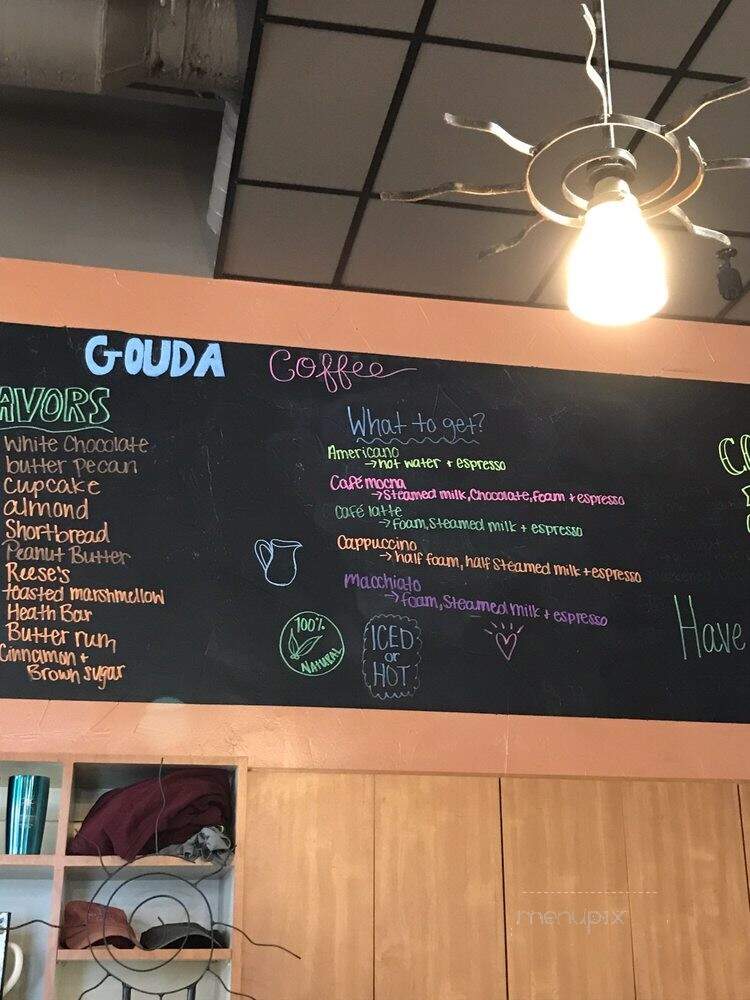 GOUDA Coffee
AVORS
White Chocolate
butter pecan
Cupcake
almond
Shortbread
Peanut Butter
Reese's
toasted marshmellow
Heath Bar
Butter rum
Cinnamon +
Brown sugar
What to get?
Americano
→hot water + espresso
Café mocha
→Steamed milk, Chocolate, foam + espresso
Café latte
→foam, Steamed milk + espresso
Cappuccino
→half foam, half Steamed milk + espresso
Macchiato
→foam, Steamed milk + espresso
100%
NATURAL
ICED
or
HOT
Have
menupix